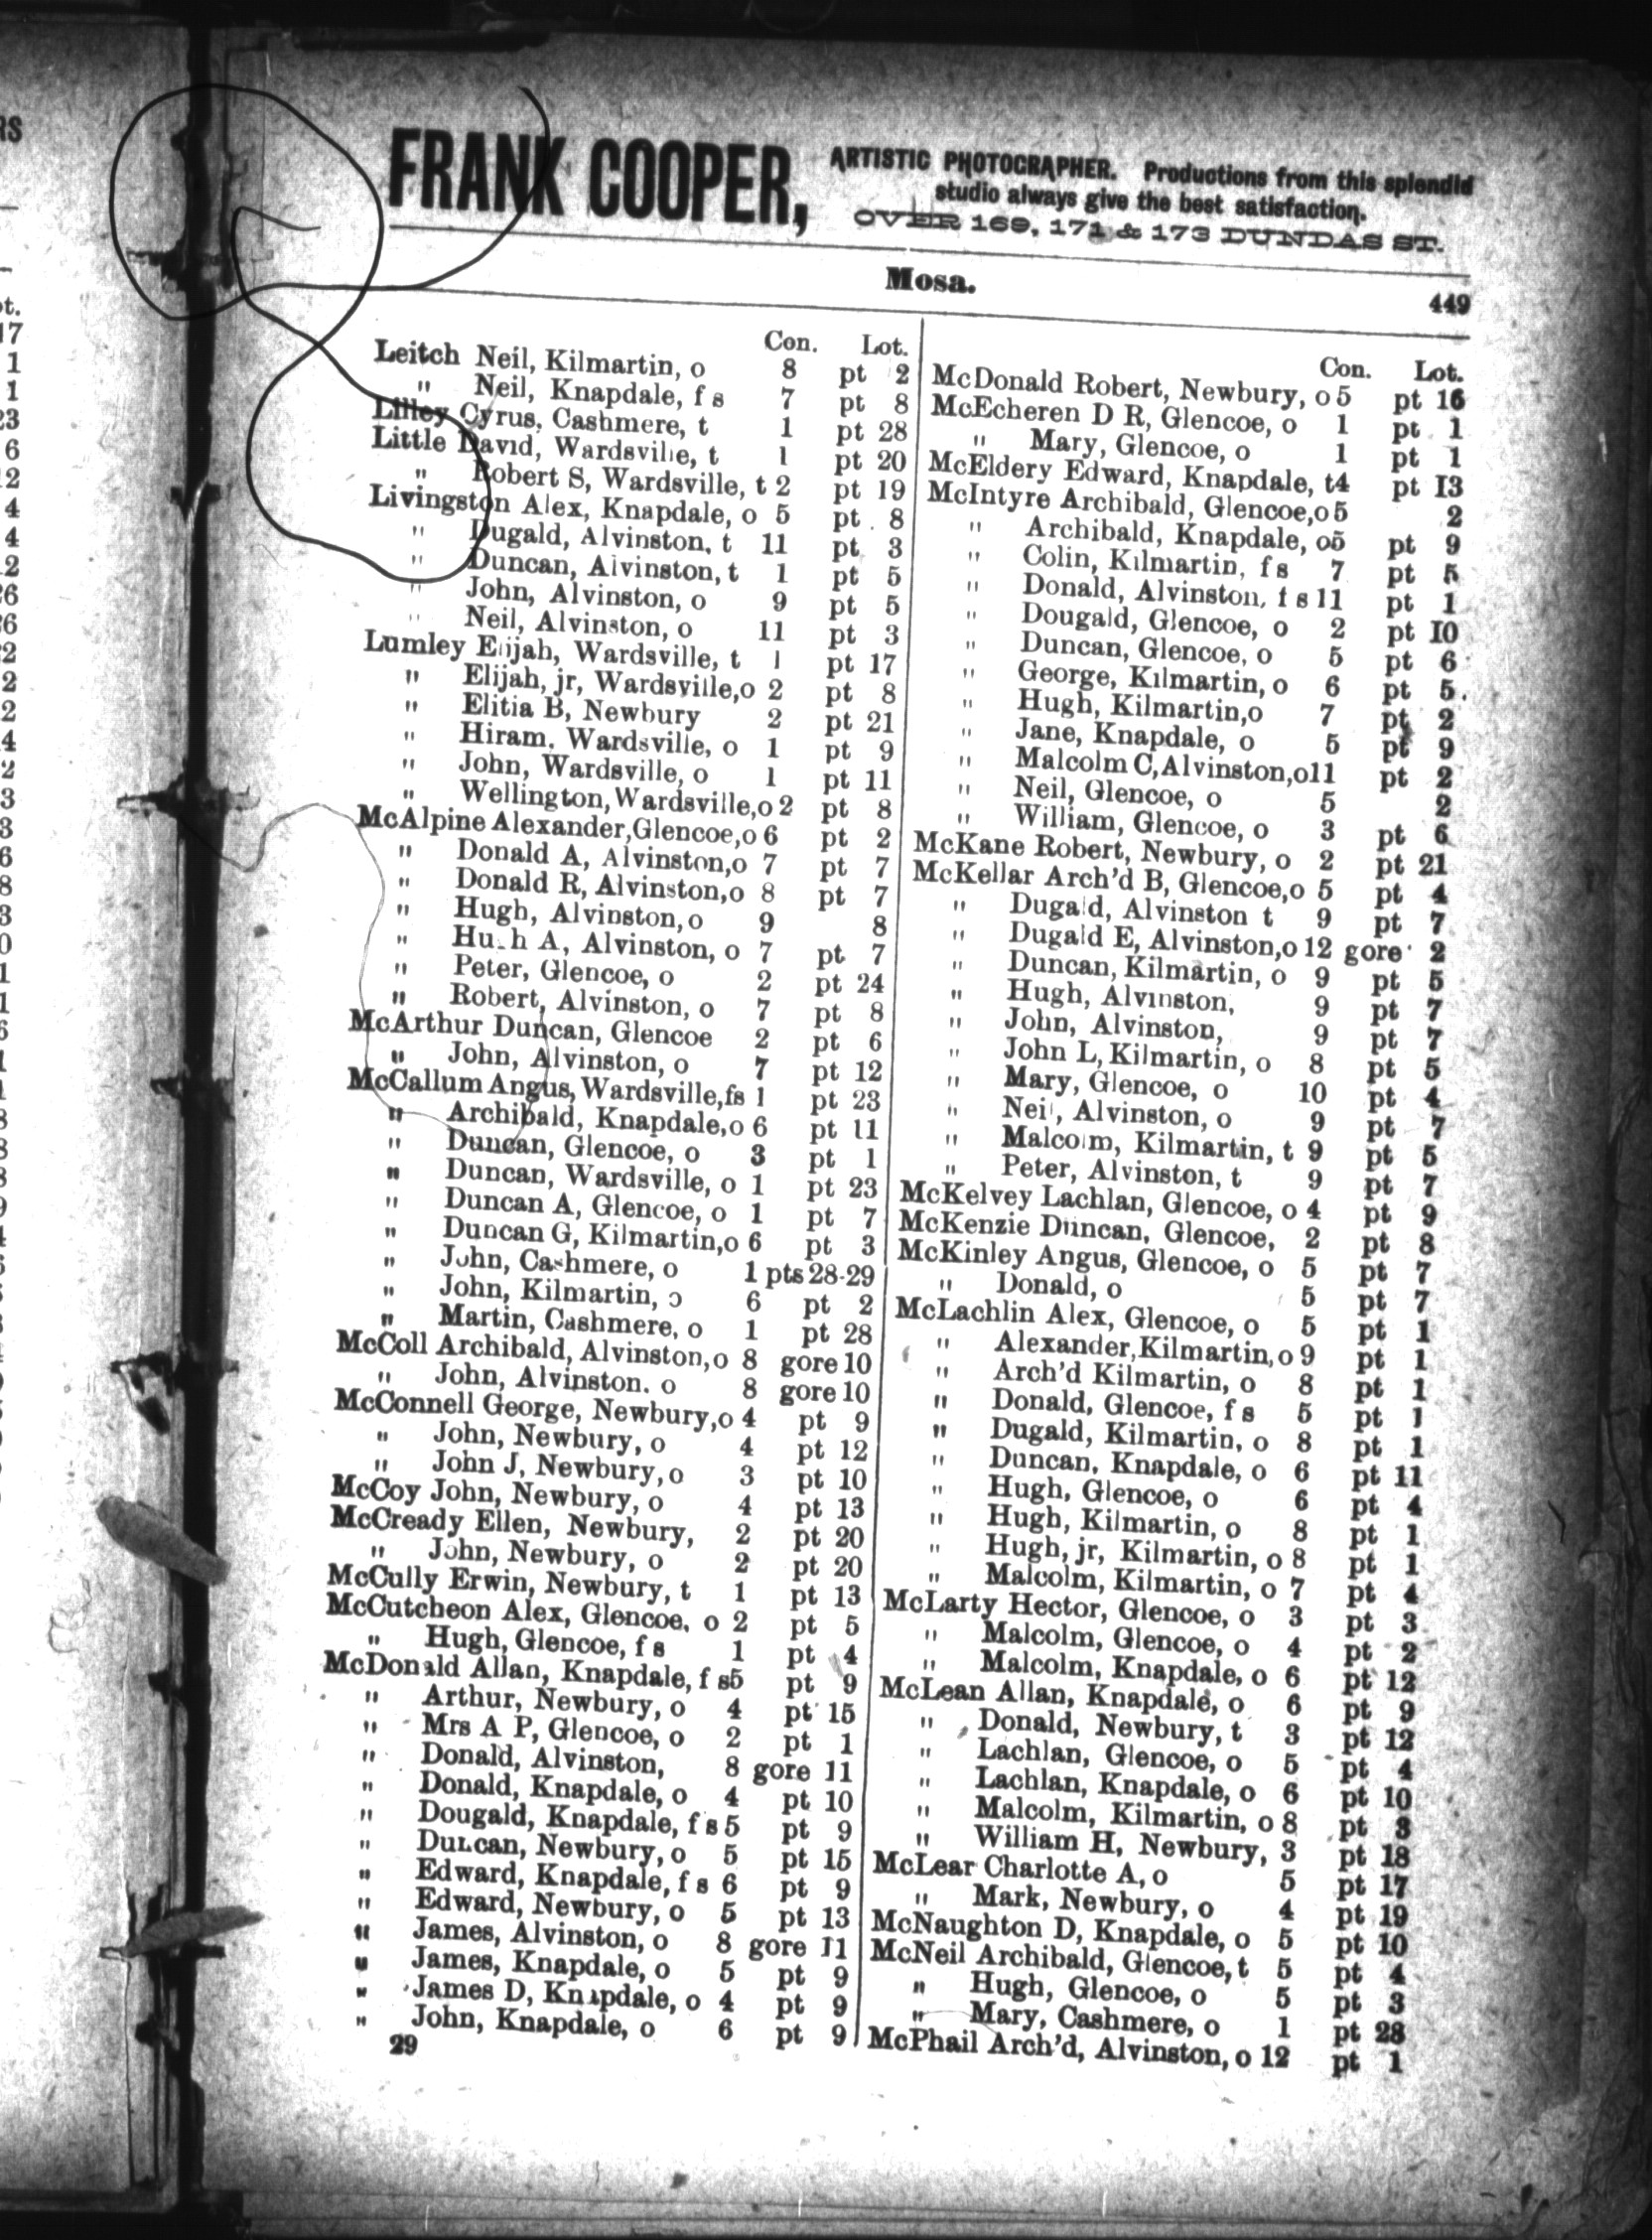 FRANK COOPER,
ARTISTIC PHOTOGRAPHER. Productions from this splendid
studio always give the best satisfaction.
OVER 169, 171 & 173 DUNDAS ST.
Mosa.
449
Con. Lot.
Leitch Neil, Kilmartin, o 8 pt 2
" Neil, Knapdale, f s 7 pt 8
Lilley Cyrus, Cashmere, t 1 pt 28
Little David, Wardsville, t 1 pt 20
" Robert S, Wardsville, t 2 pt 19
Livingston Alex, Knapdale, o 5 pt 8
" Dugald, Alvinston, t 11 pt 3
" Duncan, Alvinston, t 1 pt 5
" John, Alvinston, o 9 pt 5
" Neil, Alvinston, o 11 pt 3
Lumley Elijah, Wardsville, t 1 pt 17
" Elijah, jr, Wardsville, o 2 pt 8
" Elitia B, Newbury 2 pt 21
" Hiram, Wardsville, o 1 pt 9
" John, Wardsville, o 1 pt 11
" Wellington, Wardsville, o 2 pt 8
McAlpine Alexander, Glencoe, o 6 pt 2
" Donald A, Alvinston, o 7 pt 7
" Donald R, Alvinston, o 8 pt 7
" Hugh, Alvinston, o 9 8
" Hugh A, Alvinston, o 7 pt 7
" Peter, Glencoe, o 2 pt 24
" Robert, Alvinston, o 7 pt 8
McArthur Duncan, Glencoe 2 pt 6
" John, Alvinston, o 7 pt 12
McCallum Angus, Wardsville, fs 1 pt 23
" Archibald, Knapdale, o 6 pt 11
" Duncan, Glencoe, o 3 pt 1
" Duncan, Wardsville, o 1 pt 23
" Duncan A, Glencoe, o 1 pt 7
" Duncan G, Kilmartin, o 6 pt 3
" John, Cashmere, o 1 pts 28-29
" John, Kilmartin, o 6 pt 2
" Martin, Cashmere, o 1 pt 28
McColl Archibald, Alvinston, o 8 gore 10
" John, Alvinston. o 8 gore 10
McConnell George, Newbury, o 4 pt 9
" John, Newbury, o 4 pt 12
" John J, Newbury, o 3 pt 10
McCoy John, Newbury, o 4 pt 13
McCready Ellen, Newbury, 2 pt 20
" John, Newbury, o 2 pt 20
McCully Erwin, Newbury, t 1 pt 13
McCutcheon Alex, Glencoe, o 2 pt 5
" Hugh, Glencoe, f s 1 pt 4
McDonald Allan, Knapdale, f s 5 pt 9
" Arthur, Newbury, o 4 pt 15
" Mrs A P, Glencoe, o 2 pt 1
" Donald, Alvinston, 8 gore 11
" Donald, Knapdale, o 4 pt 10
" Dougald, Knapdale, f s 5 pt 9
" Duncan, Newbury, o 5 pt 15
" Edward, Knapdale, f s 6 pt 9
" Edward, Newbury, o 5 pt 13
" James, Alvinston, o 8 gore 11
" James, Knapdale, o 5 pt 9
" James D, Knapdale, o 4 pt 9
" John, Knapdale, o 6 pt 9
29
Con. Lot.
McDonald Robert, Newbury, o 5 pt 16
McEcheren D R, Glencoe, o 1 pt 1
" Mary, Glencoe, o 1 pt 1
McEldery Edward, Knapdale, t 4 pt 13
McIntyre Archibald, Glencoe, o 5 2
" Archibald, Knapdale, o 5 pt 9
" Colin, Kilmartin, f s 7 pt 5
" Donald, Alvinston, f s 11 pt 1
" Dougald, Glencoe, o 2 pt 10
" Duncan, Glencoe, o 5 pt 6
" George, Kilmartin, o 6 pt 5
" Hugh, Kilmartin, o 7 pt 2
" Jane, Knapdale, o 5 pt 9
" Malcolm C, Alvinston, o 11 pt 2
" Neil, Glencoe, o 5 2
" William, Glencoe, o 3 pt 6
McKane Robert, Newbury, o 2 pt 21
McKellar Arch'd B, Glencoe, o 5 pt 4
" Dugald, Alvinston t 9 pt 7
" Dugald E, Alvinston, o 12 gore 2
" Duncan, Kilmartin, o 9 pt 5
" Hugh, Alvinston, 9 pt 7
" John, Alvinston, 9 pt 7
" John L, Kilmartin, o 8 pt 5
" Mary, Glencoe, o 10 pt 4
" Neil, Alvinston, o 9 pt 7
" Malcolm, Kilmartin, t 9 pt 5
" Peter, Alvinston, t 9 pt 7
McKelvey Lachlan, Glencoe, o 4 pt 9
McKenzie Duncan, Glencoe, 2 pt 8
McKinley Angus, Glencoe, o 5 pt 7
" Donald, o 5 pt 7
McLachlin Alex, Glencoe, o 5 pt 1
" Alexander, Kilmartin, o 9 pt 1
" Arch'd Kilmartin, o 8 pt 1
" Donald, Glencoe, f s 5 pt 1
" Dugald, Kilmartin, o 8 pt 1
" Duncan, Knapdale, o 6 pt 11
" Hugh, Glencoe, o 6 pt 4
" Hugh, Kilmartin, o 8 pt 1
" Hugh, jr, Kilmartin, o 8 pt 1
" Malcolm, Kilmartin, o 7 pt 4
McLarty Hector, Glencoe, o 3 pt 3
" Malcolm, Glencoe, o 4 pt 2
" Malcolm, Knapdale, o 6 pt 12
McLean Allan, Knapdale, o 6 pt 9
" Donald, Newbury, t 3 pt 12
" Lachlan, Glencoe, o 5 pt 4
" Lachlan, Knapdale, o 6 pt 10
" Malcolm, Kilmartin, o 8 pt 3
" William H, Newbury, 3 pt 18
McLear Charlotte A, o 5 pt 17
" Mark, Newbury, o 4 pt 19
McNaughton D, Knapdale, o 5 pt 10
McNeil Archibald, Glencoe, t 5 pt 4
" Hugh, Glencoe, o 5 pt 3
" Mary, Cashmere, o 1 pt 28
McPhail Arch'd, Alvinston, o 12 pt 1